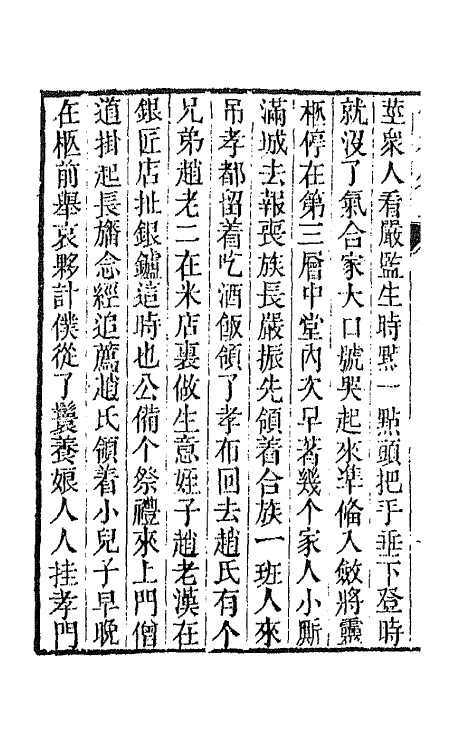 莖衆人看嚴監生時點一點頭把手垂下登時
就沒了氣合家大口號哭起來準備入斂將靈
柩停在第三層中堂內次早著幾个家人小厮
滿城去報喪族長嚴振先領着合族一班人來
吊孝都留着吃酒飯領了孝布回去趙氏有个
兄弟趙老二在米店裏做生意姪子趙老漢在
銀匠店扯銀鑪這時也公備个祭禮來上門僧
道掛起長旛念經追薦趙氏領着小兒子早晚
在柩前舉哀夥計僕從丫鬟養娘人人挂孝門